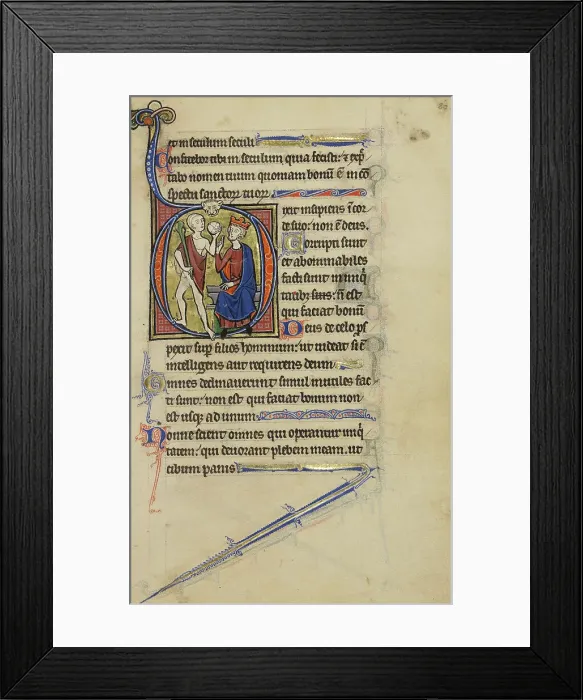 et in seculum seculi
Confitebor tibi in seculum quia fecisti: & exp̄
tabo nomen tuum quoniam bonū ē in cō
spectu sanctoꝝ tuoꝝ
Dixit insipiens ī cor
de suo: non ē deus.
Corrupti sunt
et abominabiles
facti sunt in iniq̄
tatibꝫ suis: n̄ est
qui faciat bonū
Deus de celo ꝓs
pexit sup̄ filios hominum: ut uideat si ē
intelligens aut requirens deum
Omnes declinauerunt simul inutiles fac
ti sunt: non est qui faciat bonum non
est usqꝫ ad unum
Nonne scient omnes qui operantur iniq̄
tatem: qui deuorant plebem meam. ut
cibum panis